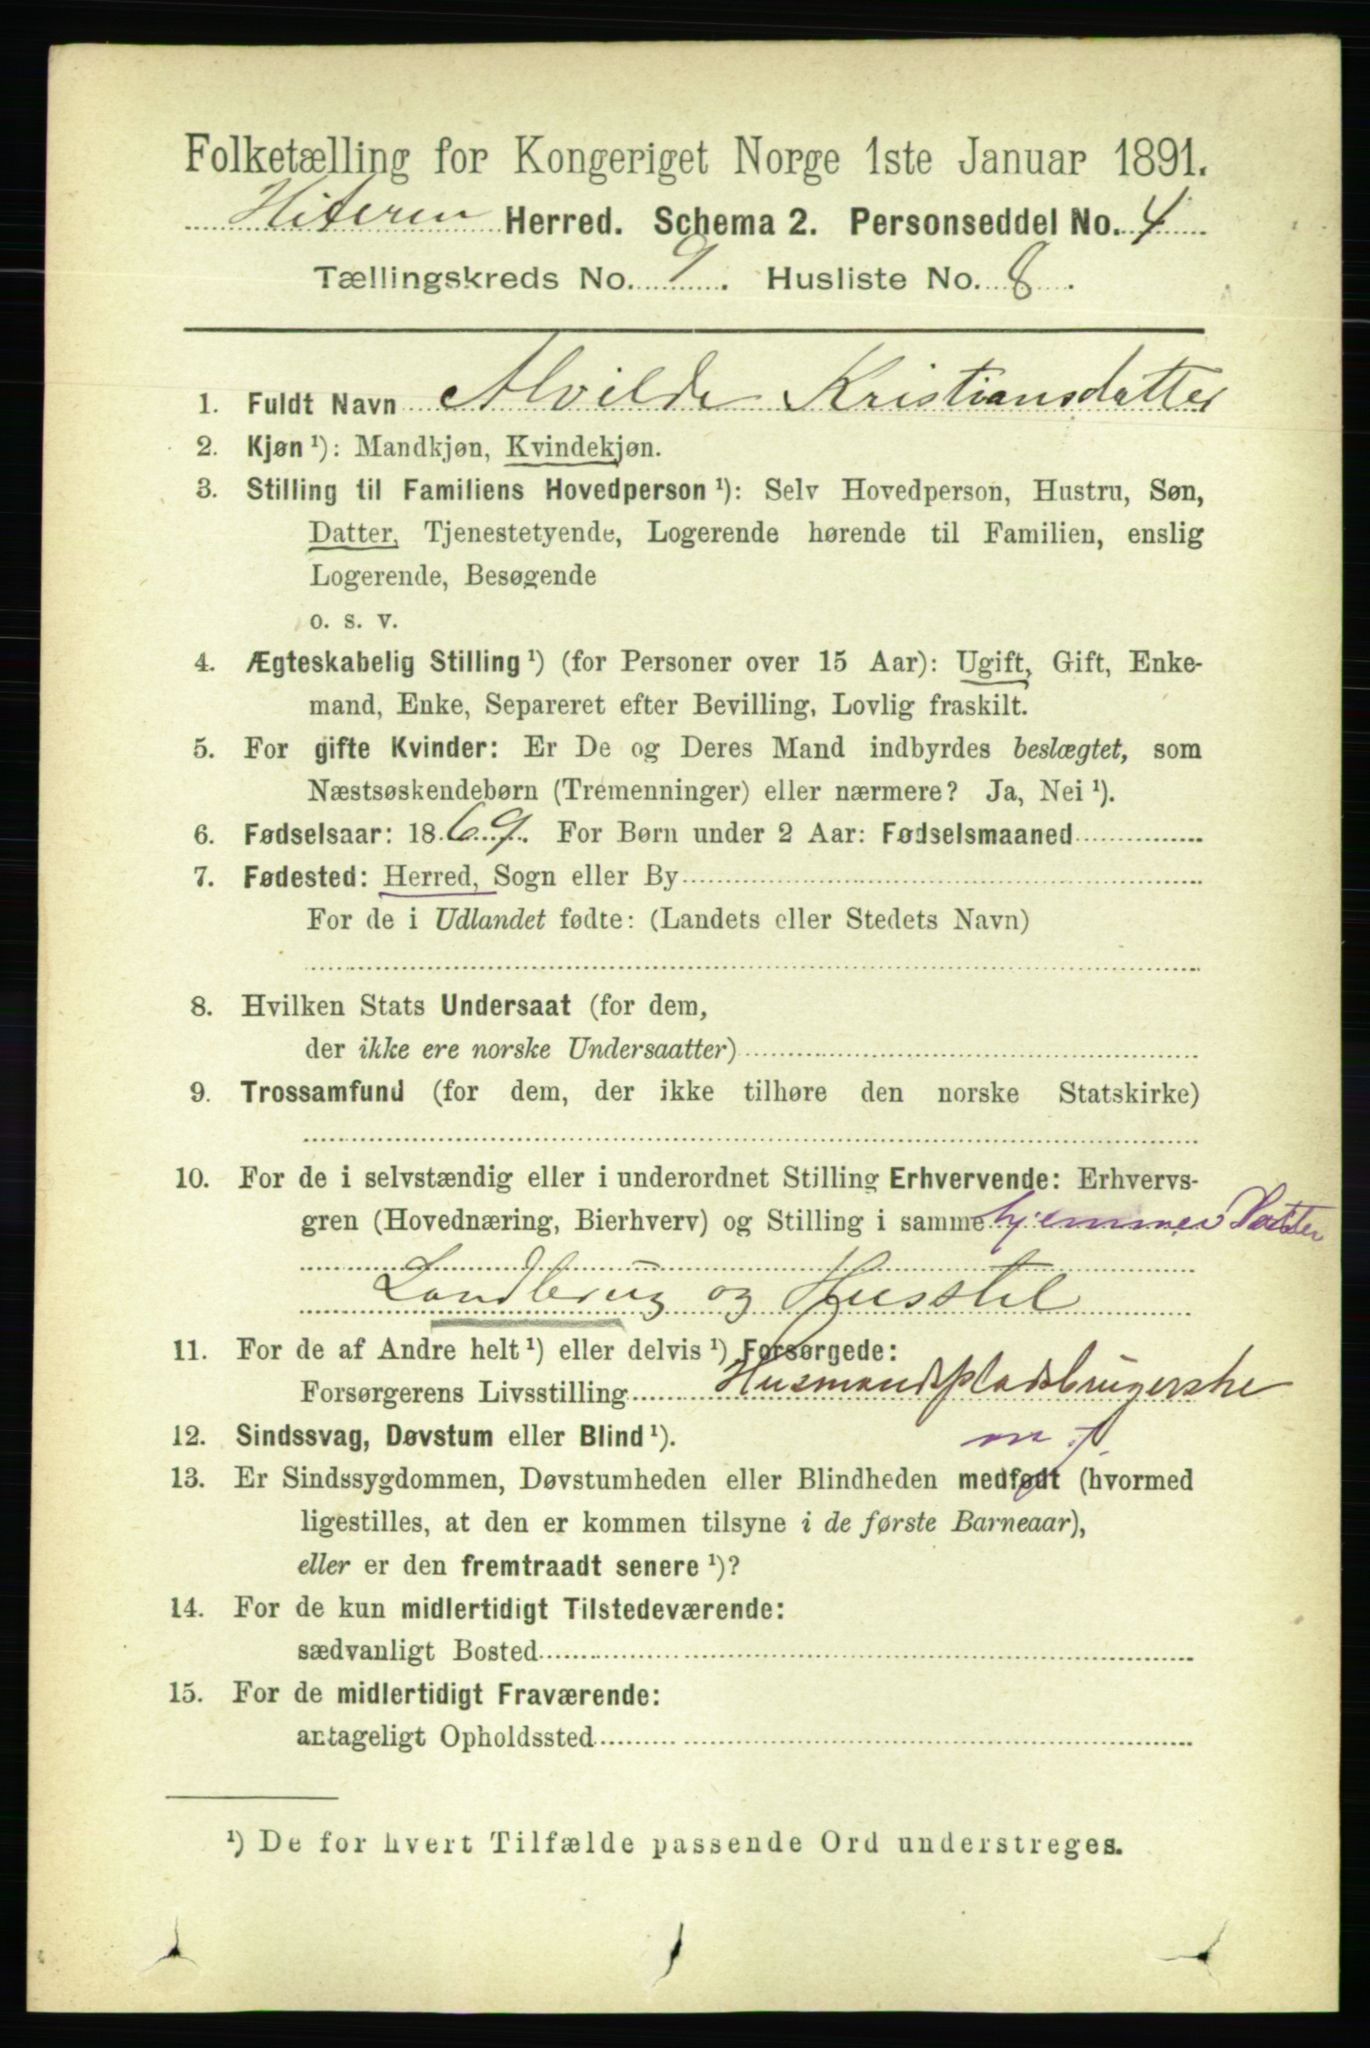 Folketælling for Kongeriget Norge 1ste Januar 1891.
Hiteren Herred. Schema 2. Personseddel No. 4
Tællingskreds No. 9. Husliste No. 8.
1. Fuldt Navn Alvilde Kristiansdatter
2. Kjøn ¹): Mandkjøn, Kvindekjøn.
3. Stilling til Familiens Hovedperson ¹): Selv Hovedperson, Hustru, Søn,
Datter, Tjenestetyende, Logerende hørende til Familien, enslig
Logerende, Besøgende
o. s. v.
4. Ægteskabelig Stilling ¹) (for Personer over 15 Aar): Ugift, Gift, Enke-
mand, Enke, Separeret efter Bevilling, Lovlig fraskilt.
5. For gifte Kvinder: Er De og Deres Mand indbyrdes beslægtet, som
Næstsøskendebørn (Tremenninger) eller nærmere? Ja, Nei ¹).
6. Fødselsaar: 1869. For Børn under 2 Aar: Fødselsmaaned
7. Fødested: Herred, Sogn eller By
For de i Udlandet fødte: (Landets eller Stedets Navn)
8. Hvilken Stats Undersaat (for dem,
der ikke ere norske Undersaatter)
9. Trossamfund (for dem, der ikke tilhøre den norske Statskirke)
10. For de i selvstændig eller i underordnet Stilling Erhvervende: Erhvervs-
gren (Hovednæring, Bierhverv) og Stilling i samme hjemmev Datter
Landbrug og Husstel
11. For de af Andre helt ¹) eller delvis ¹) Forsørgede:
Forsørgerens Livsstilling Husmandspladsbrugerske
12. Sindssvag, Døvstum eller Blind ¹). m. f.
13. Er Sindssygdommen, Døvstumheden eller Blindheden medfødt (hvormed
ligestilles, at den er kommen tilsyne i de første Barneaar),
eller er den fremtraadt senere ¹)?
14. For de kun midlertidigt Tilstedeværende:
sædvanligt Bosted
15. For de midlertidigt Fraværende:
antageligt Opholdssted
¹) De for hvert Tilfælde passende Ord understreges.